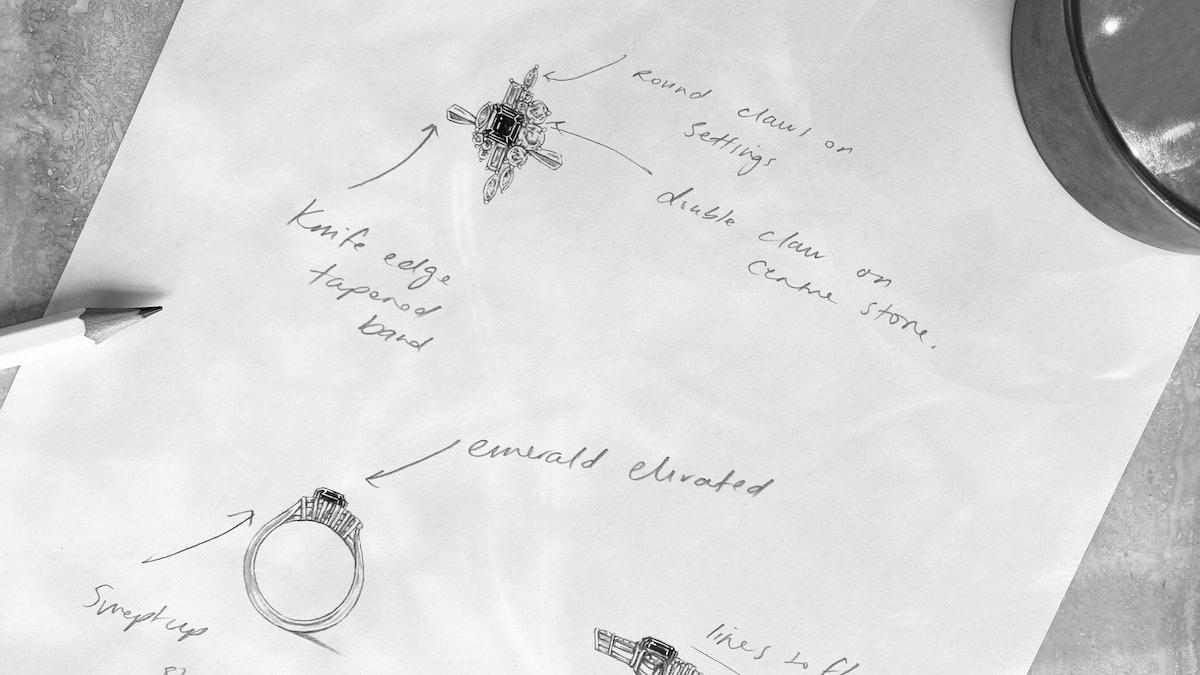 Round claws on
settings
double claw on
centre stone.
Knife edge
tapered
band
emerald elevated
Swept up
lines to fl